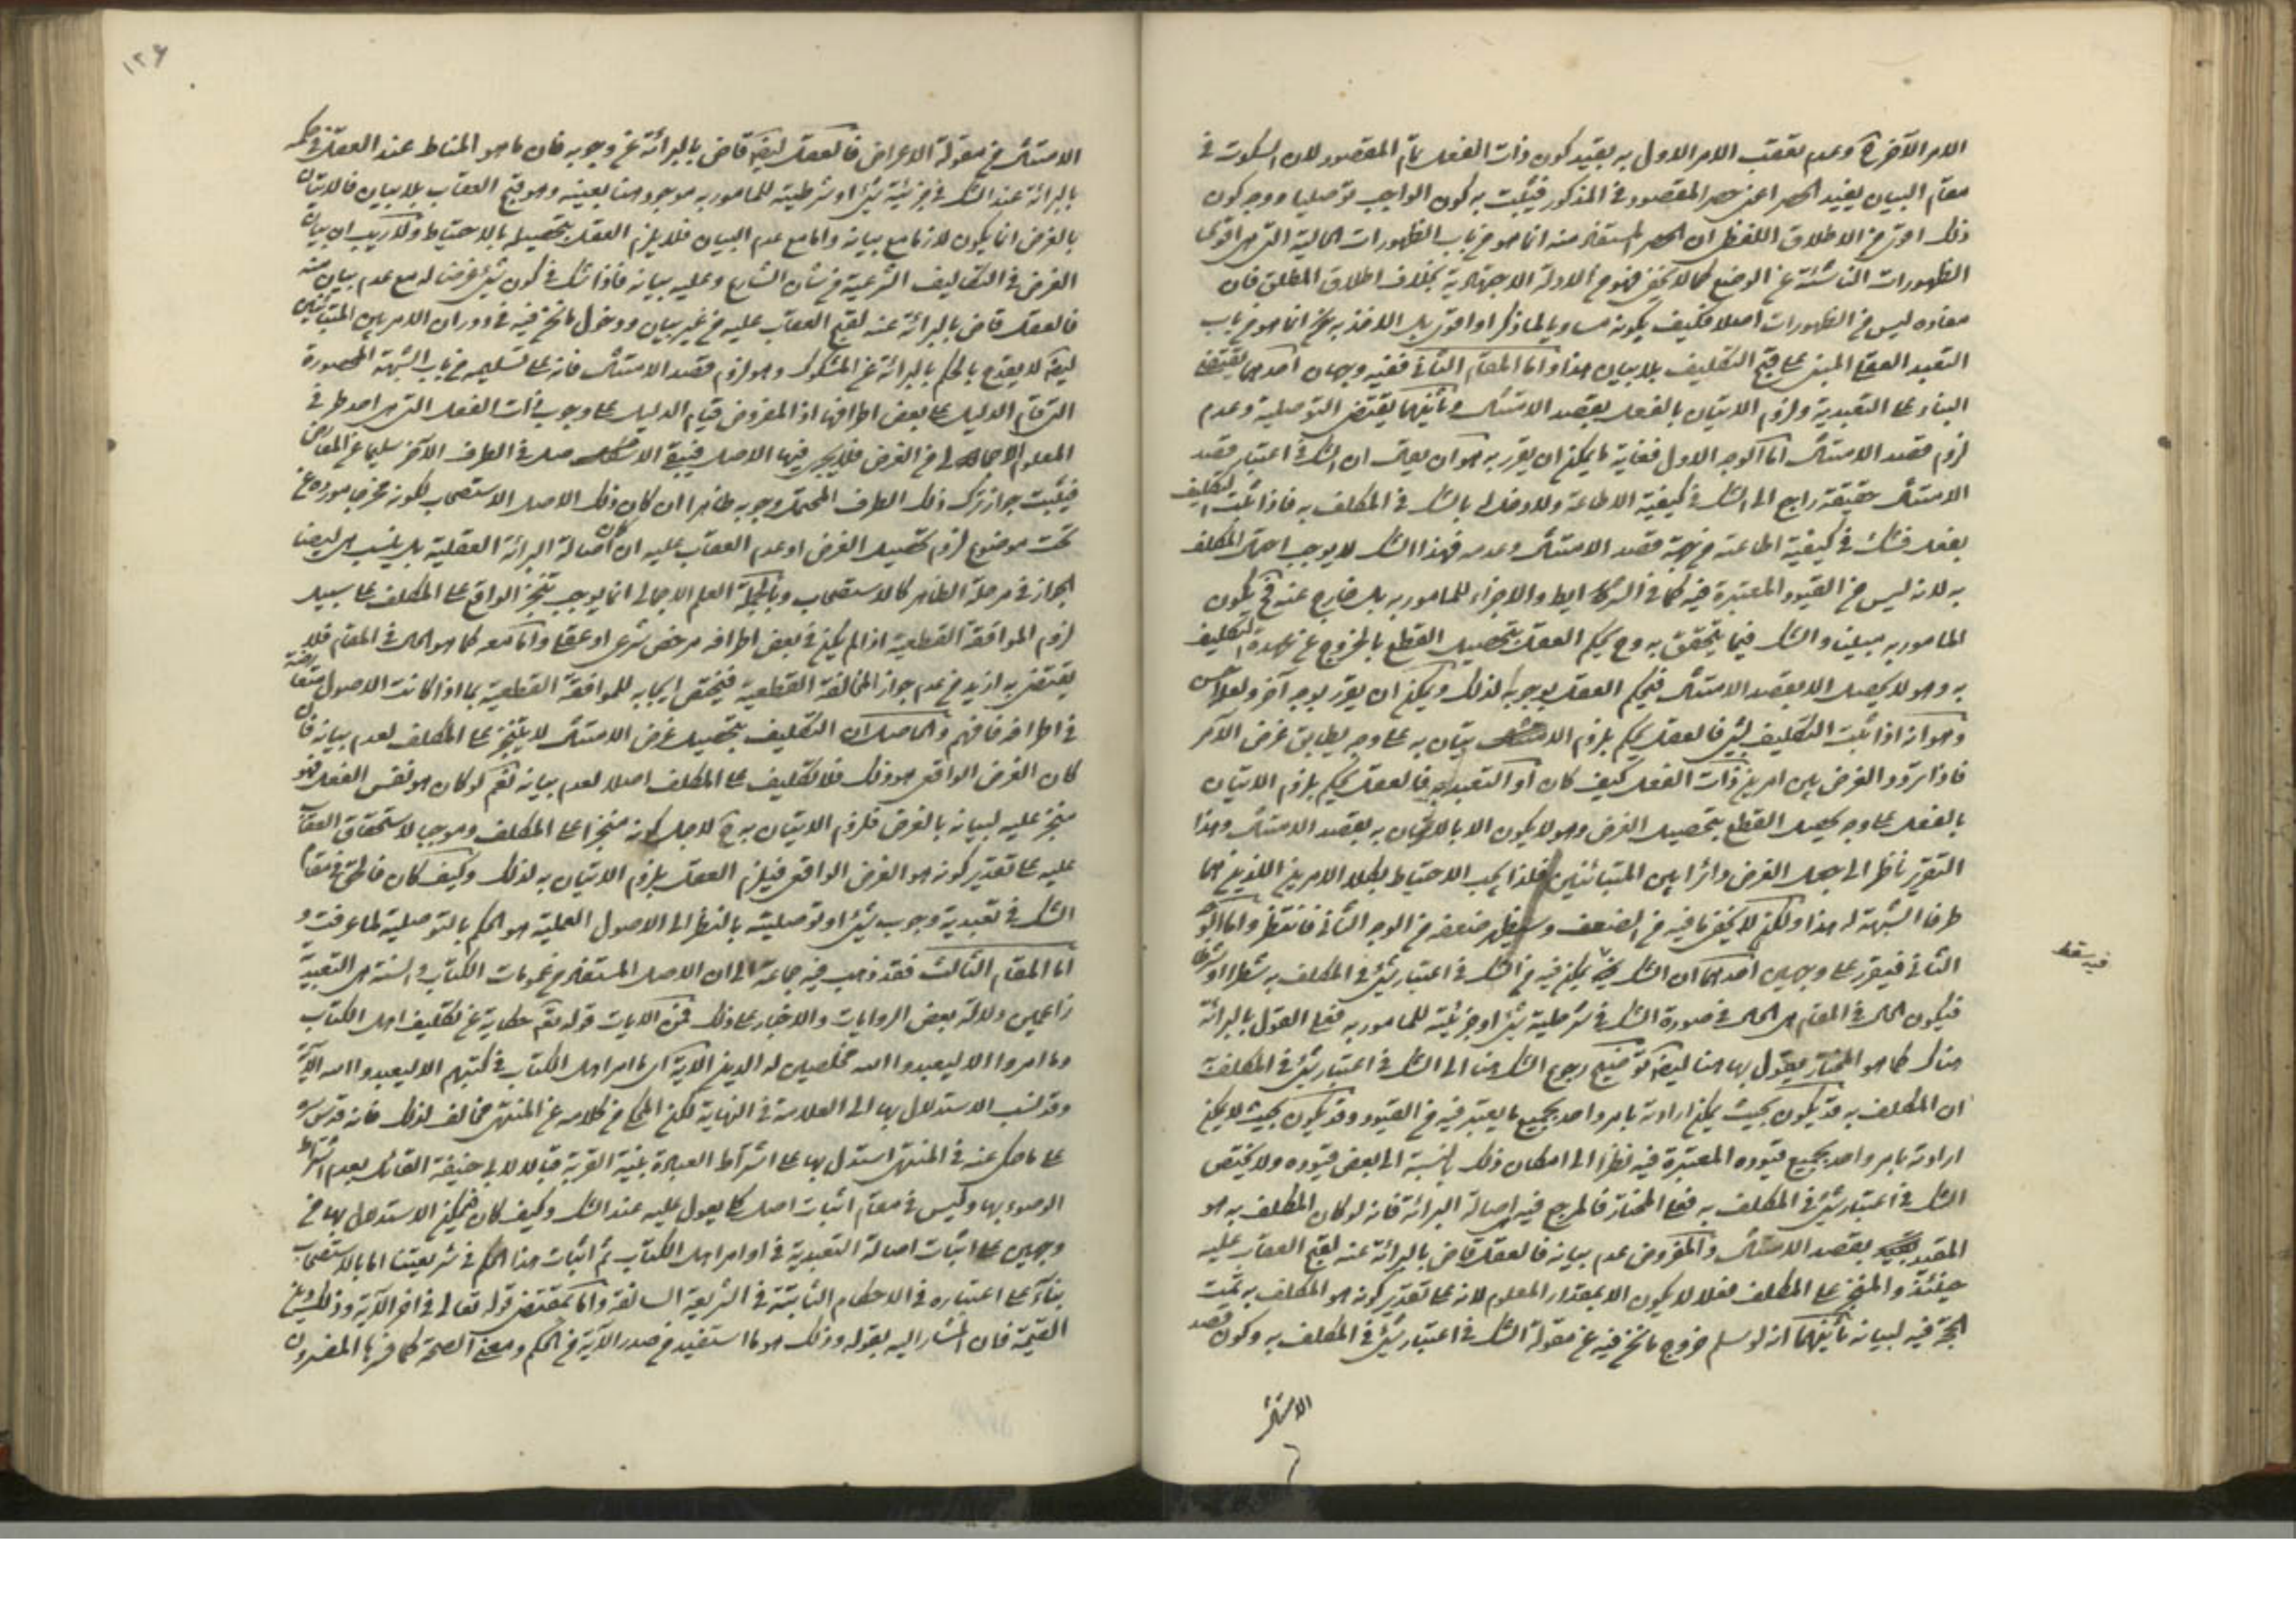 الامر الآخر وعدم تعقب الامر الاول به يفيد كون ذات الفعل تمام المقصود لان السكوت في
مقام البيان يفيد الحصر اعني حصر المقصود في المذكور فيثبت به كون الواجب توصليا ووجه كون
ذلك اقوى من الاطلاق اللفظي ان الحصر المستفاد منه انما هو من باب الظهورات الحالية التي هي اقوى
الظهورات الناشئة عن الوضع كما لا يخفى فهو من الادلة الاجتهادية بخلاف اطلاق المطلق فان
مفاده ليس من الظهورات اصلا فكيف بكونه مساويا لما ذكر او اقوى بل الاخذ به ح انما هو من باب
التعبد العقلي المبني على قبح التكليف بلا بيان هذا واما المقام الثاني ففيه وجهان احدهما يقتضي
البناء على التعبدية ولزوم الاتيان بالفعل بقصد الامتثال وثانيهما يقتضي التوصلية وعدم
لزوم قصد الامتثال اما الوجه الاول فغاية ما يمكن ان يقرر به هو ان يقال ان الشك في اعتبار قصد
الامتثال حقيقة راجع الى الشك في كيفية الاطاعة ولا دخل له بالشك في المكلف به فاذا ثبت التكليف
بفعل فشك في كيفية اطاعته من جهة قصد الامتثال وعدمه فهذا الشك لا يوجب اجمال المكلف
به لانه ليس من القيود المعتبرة فيه كما في الشرايط والاجزاء للمامور به بل خارج عنه فح يكون
المامور به مبينا والشك فيما يتحقق به وح يحكم العقل بتحصيل القطع بالخروج عن عهدة التكليف
به وهو لا يحصل الا بقصد الامتثال فيحكم العقل بوجوبه لذلك ويمكن ان يقرر بوجه آخر ولعله احسن
وهو انه اذا ثبت التكليف بشئ فالعقل يحكم بلزوم الاتيان به على وجه يطابق غرض الآمر
فاذا تردد الغرض بين امرين ذات الفعل كيف كان او التعبد به فالعقل يحكم بلزوم الاتيان
بالفعل على وجه يحصل القطع بتحصيل الغرض وهو لا يكون الا بالاتيان به بقصد الامتثال وهذا
التقرير ناظر الى جعل الغرض دائرا بين المتبائنين فلذا يجب الاحتياط بكلا الامرين اللذين هما
طرفا الشبهة له هذا ولكن لا يخفى ما فيه من الضعف وسيظهر ضعفه من الوجه الثاني فانتظر واما الوجه
الثاني فيقرر على وجهين احدهما ان الشك فيما يمكن فيه من الشك في اعتبار شئ في المكلف به شطرا او شرطا
فيكون الحال في المقام هي الحال في صورة الشك في شرطية شئ او جزئيته للمامور به فعلى القول بالبرائة
هناك كما هو المختار نقول بها هنا ايضا توضيح رجوع الشك هنا الى الشك في اعتبار شئ في المكلف به
ان المكلف به قد يكون بحيث يمكن ارادته بامر واحد بجميع ما يعتبر فيه من القيود وقد يكون بحيث لا يمكن
ارادته بامر واحد بجميع قيوده المعتبرة فيه نظرا الى امكان ذلك بالنسبة الى بعض قيوده ولا يختص
الشك في اعتبار شئ في المكلف به فعلى المختار فالمرجع فيه اصالة البرائة فانه لو كان المكلف به هو
المقيد بقصد الامتثال والمفروض عدم بيانه فالعقل قاض بالبرائة عنه لقبح العقاب عليه
حينئذ والمنجز على المكلف فعلا لا يكون الا بمقدار المعلوم لانه على تقدير كونه هو المكلف به تمت
الحجة فيه لبيانه ثانيهما انه لو سلم خروج ما نحن فيه عن مقولة الشك في اعتبار شئ في المكلف به وكون قصد
الامتثال
فيه سقط
١٢٦
الامتثال من مقولة الاعراض فالعقل ايضا قاض بالبرائة عن وجوبه فان ما هو المناط عند العقل في حكمه
بالبرائة عند الشك في جزئية شئ او شرطيته للمامور به موجود هنا بعينه وهو قبح العقاب بلا بيان فالاتيان
بالغرض انما يكون لازما مع بيانه واما مع عدم البيان فلا يلزم العقل بتحصيله بالاحتياط ولا ريب ان بيان
الغرض في التكاليف الشرعية من شان الشارع وعليه بيانه فاذا شك في كون شئ غرضا له مع عدم بيان منه
فالعقل قاض بالبرائة عنه لقبح العقاب عليه من غير بيان ودخول ما نحن فيه في دوران الامر بين المتبائنين
ايضا لا يقدح بالحكم بالبرائة عن المشكوك وهو لزوم قصد الامتثال فانه على تسليمه من باب الشبهة المحصورة
التي قام الدليل على بعض اطرافها اذ المفروض قيام الدليل على وجوب ذات الفعل التي هي احد طرفي
المعلوم الاجمالي من الغرض فلا يجري فيها الاصل فيبقى الاصل في الطرف الآخر سليما عن المعارض
فيثبت جواز ترك ذلك الطرف المحتمل وجوبه ظاهرا ان كان ذلك الاصل الاستصحاب لكونه مخرجا مورده عن
تحت موضوع لزوم تحصيل الغرض او عدم العقاب عليه ان كان اصالة البرائة العقلية بل يثبت هي ايضا
الجواز في مرحلة الظاهر كالاستصحاب وبالجملة العلم الاجمالي انما يوجب تنجز الواقع على المكلف على سبيل
لزوم الموافقة القطعية اذا لم يكن في بعض اطرافه مرخص شرعي او عقلي واما معه كما هو الحال في المقام فلا
يقتضي به ازيد من عدم جواز المخالفة القطعية فيختص ايجابه للموافقة القطعية بما اذا كانت الاصول متعارضة
في اطرافه فافهم والحاصل ان التكليف بتحصيل غرض الامتثال لا يتنجز على المكلف لعدم بيانه فان
كان الغرض الواقعي هو ذلك فلا تكليف على المكلف اصلا لعدم بيانه نعم لو كان هو نفس الفعل فهو
منجز عليه لبيانه بالفرض فلزوم الاتيان به ح لاجل كونه منجزا على المكلف وموجبا لاستحقاق العقاب
عليه على تقدير كونه هو الغرض الواقعي فيلزم العقل بلزوم الاتيان به لذلك وكيف كان فالحق في مقام
الشك في تعبدية وجوب شئ او توصليته بالنظر الى الاصول العملية هو الحكم بالتوصلية لما عرفت و
اما المقام الثالث فقد ذهب فيه جماعة الى ان الاصل المستفاد من عمومات الكتاب والسنة هي التعبدية
زاعمين دلالة بعض الروايات والاخبار على ذلك فمن الايات قوله تعالى حكاية عن تكليف اهل الكتاب
وما امروا الا ليعبدوا الله مخلصين له الدين الآية اي ما امر اهل الكتاب في كتبهم الا ليعبدوا الله الآية
وقد نسب الاستدلال بها الى العلامة في النهاية لكن المحكي من كلامه عن المنتهى مخالف لذلك فانه قدس سره
على ما حكي عنه في المنتهى استدل بها على اشتراط العبادة بنية القربة قبالا لابي حنيفة القائل بعدم اشتراط
الوضوء بها وليس في مقام اثبات اصل كلي يعول عليه عند الشك وكيف كان فيمكن الاستدلال بها من
وجهين على اثبات اصالة التعبدية في اوامر اهل الكتاب ثم اثبات هذا الحكم في شريعتنا اما بالاستصحاب
بناء على اعتباره في الاحكام الثابتة في الشريعة السالفة واما بمقتضى قوله تعالى في اخر الآية وذلك دين
القيمة فان المشار اليه بقوله وذلك هو ما استفيد من صدر الآية من الحكم ومعنى الصحة كما فسرها المفسرون